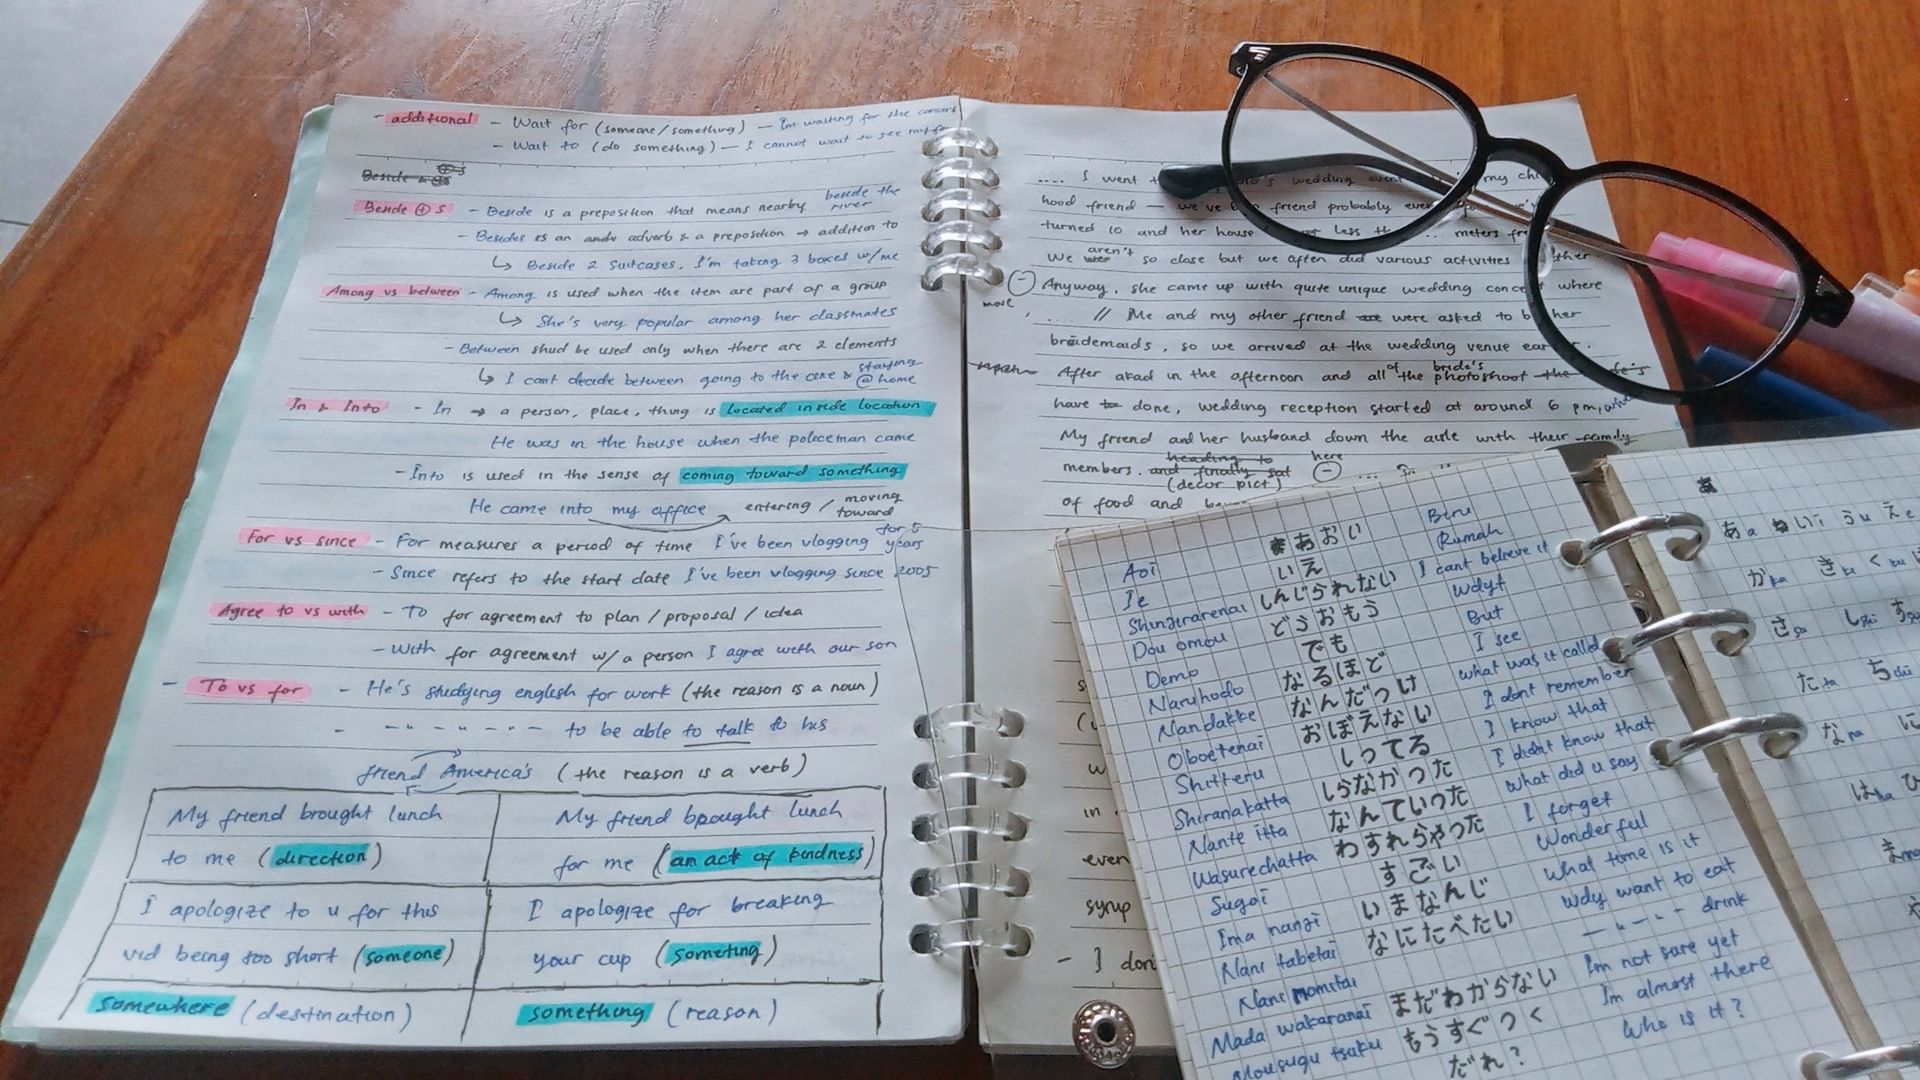 - additional - Wait for (someone/something) - I'm waiting for the concert
- Wait to (do something) - I cannot wait to see my
Beside & ⊕s
Beside ⊕ s - Beside is a preposition that means nearby beside the river
- Besides is an adverb & a preposition → addition to
↳ Beside 2 suitcases, I'm taking 3 boxes w/me
Among vs between - Among is used when the item are part of a group
↳ She's very popular among her classmates
- Between shud be used only when there are 2 elements
↳ I cant decide between going to the cine & staying @home
In & Into - In → a person, place, thing is located inside location
He was in the house when the policeman came
- Into is used in the sense of coming toward something
He came into my office entering / moving toward
For vs since - For measures a period of time I've been vlogging for 5 years
- Since refers to the start date I've been vlogging since 2005
Agree to vs with - To for agreement to plan / proposal / idea
- With for agreement w/a person I agree with our son
- To vs for - He's studying english for work (the reason is a noun)
- -"-"-"- to be able to talk to his
friend America's (the reason is a verb)
My friend brought lunch
to me (direction)
My friend brought lunch
for me (an act of kindness)
I apologize to u for this
vid being too short (someone)
I apologize for breaking
your cup (someting)
somewhere (destination)
something (reason)
.... I went wedding event my
hood friend — we've friend probably
turned 10 and her house less meters
We aren't so close but we often did various activities
Anyway, she came up with quite unique wedding concept where
more
.... // Me and my other friend were asked to be her
bridemaids, so we arrived at the wedding venue
After akad in the afternoon and all of the bride's photoshoot
have to done, wedding reception started at around 6 pm,
My friend and her husband down the aisle with their family
members. and finally sat heading to here
(decor pict)
of food and
even
syrup
- I
Aoi あおい Biru
Ie いえ Rumah
Shinjirarenai しんじられない I cant believe it
Dou omou どうおもう wdyt
Demo でも But
Naruhodo なるほど I see
Nandakke なんだっけ what was it called
Oboetenai おぼえない I dont remember
Shitteru しってる I know that
Shiranakatta しらなかった I didnt know that
Nante itta なんていった what did u say
Wasurechatta わすれちゃった I forget
Sugoi すごい Wonderfull
Ima nanji いまなんじ What time is it
Nani tabetai なにたべたい wdy want to eat
Nani nomitai -"-"- drink
Mada wakaranai まだわからない Im not sure yet
Mousugu tsuku もうすぐつく Im almost there
だれ? Who is it?
あ
あa いi うu えe
かka きki くku
さsa しshi すsu
たta ちchi
なna に
はha ひ
まma